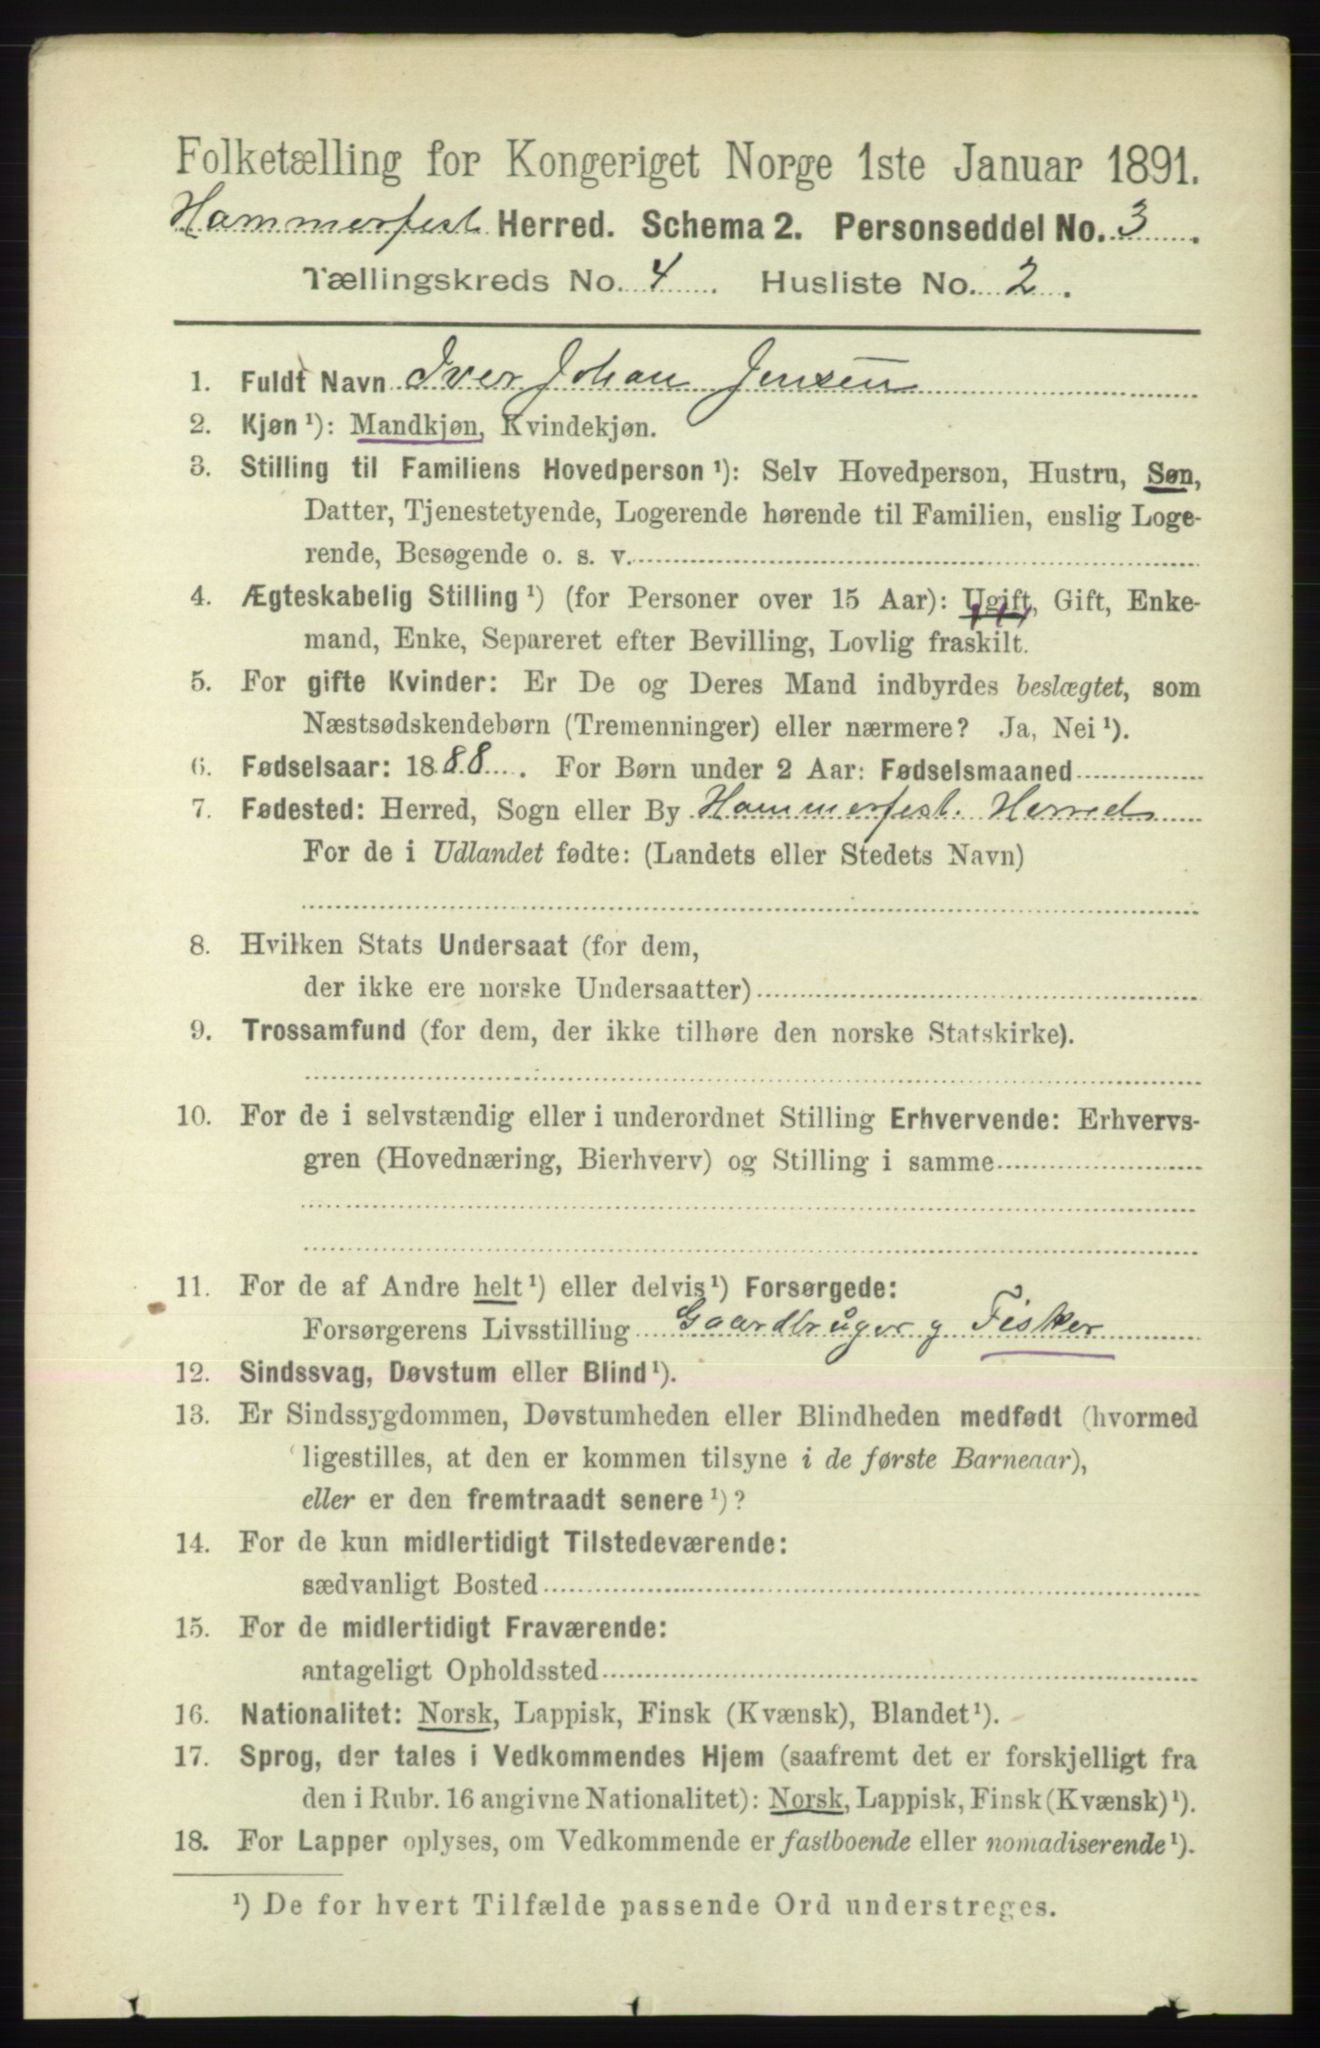 Folketælling for Kongeriget Norge 1ste Januar 1891.
Hammerfest Herred. Schema 2. Personseddel No. 3.
Tællingskreds No. 4. Husliste No. 2.
1. Fuldt Navn Iver Johan Jensen
2. Kjøn ¹): Mandkjøn, Kvindekjøn.
3. Stilling til Familiens Hovedperson ¹): Selv Hovedperson, Hustru, Søn,
Datter, Tjenestetyende, Logerende hørende til Familien, enslig Loge-
rende, Besøgende o. s. v.
4. Ægteskabelig Stilling ¹) (for Personer over 15 Aar): Ugift, Gift, Enke-
mand, Enke, Separeret efter Bevilling, Lovlig fraskilt.
5. For gifte Kvinder: Er De og Deres Mand indbyrdes beslægtet, som
Næstsødskendebørn (Tremenninger) eller nærmere? Ja, Nei ¹).
6. Fødselsaar: 1888. For Børn under 2 Aar: Fødselsmaaned
7. Fødested: Herred, Sogn eller By Hammerfest. Herred
For de i Udlandet fødte: (Landets eller Stedets Navn)
8. Hvilken Stats Undersaat (for dem,
der ikke ere norske Undersaatter)
9. Trossamfund (for dem, der ikke tilhøre den norske Statskirke).
10. For de i selvstændig eller i underordnet Stilling Erhvervende: Erhvervs-
gren (Hovednæring, Bierhverv) og Stilling i samme
11. For de af Andre helt ¹) eller delvis ¹) Forsørgede:
Forsørgerens Livsstilling Gaardbruger g Fisker
12. Sindssvag, Døvstum eller Blind ¹).
13. Er Sindssygdommen, Døvstumheden eller Blindheden medfødt (hvormed
ligestilles, at den er kommen tilsyne i de første Barneaar),
eller er den fremtraadt senere ¹)?
14. For de kun midlertidigt Tilstedeværende:
sædvanligt Bosted
15. For de midlertidigt Fraværende:
antageligt Opholdssted
16. Nationalitet: Norsk, Lappisk, Finsk (Kvænsk), Blandet ¹).
17. Sprog, der tales i Vedkommendes Hjem (saafremt det er forskjelligt fra
den i Rubr. 16 angivne Nationalitet): Norsk, Lappisk, Finsk (Kvænsk) ¹).
18. For Lapper oplyses, om Vedkommende er fastboende eller nomadiserende ¹).
¹) De for hvert Tilfælde passende Ord understreges.